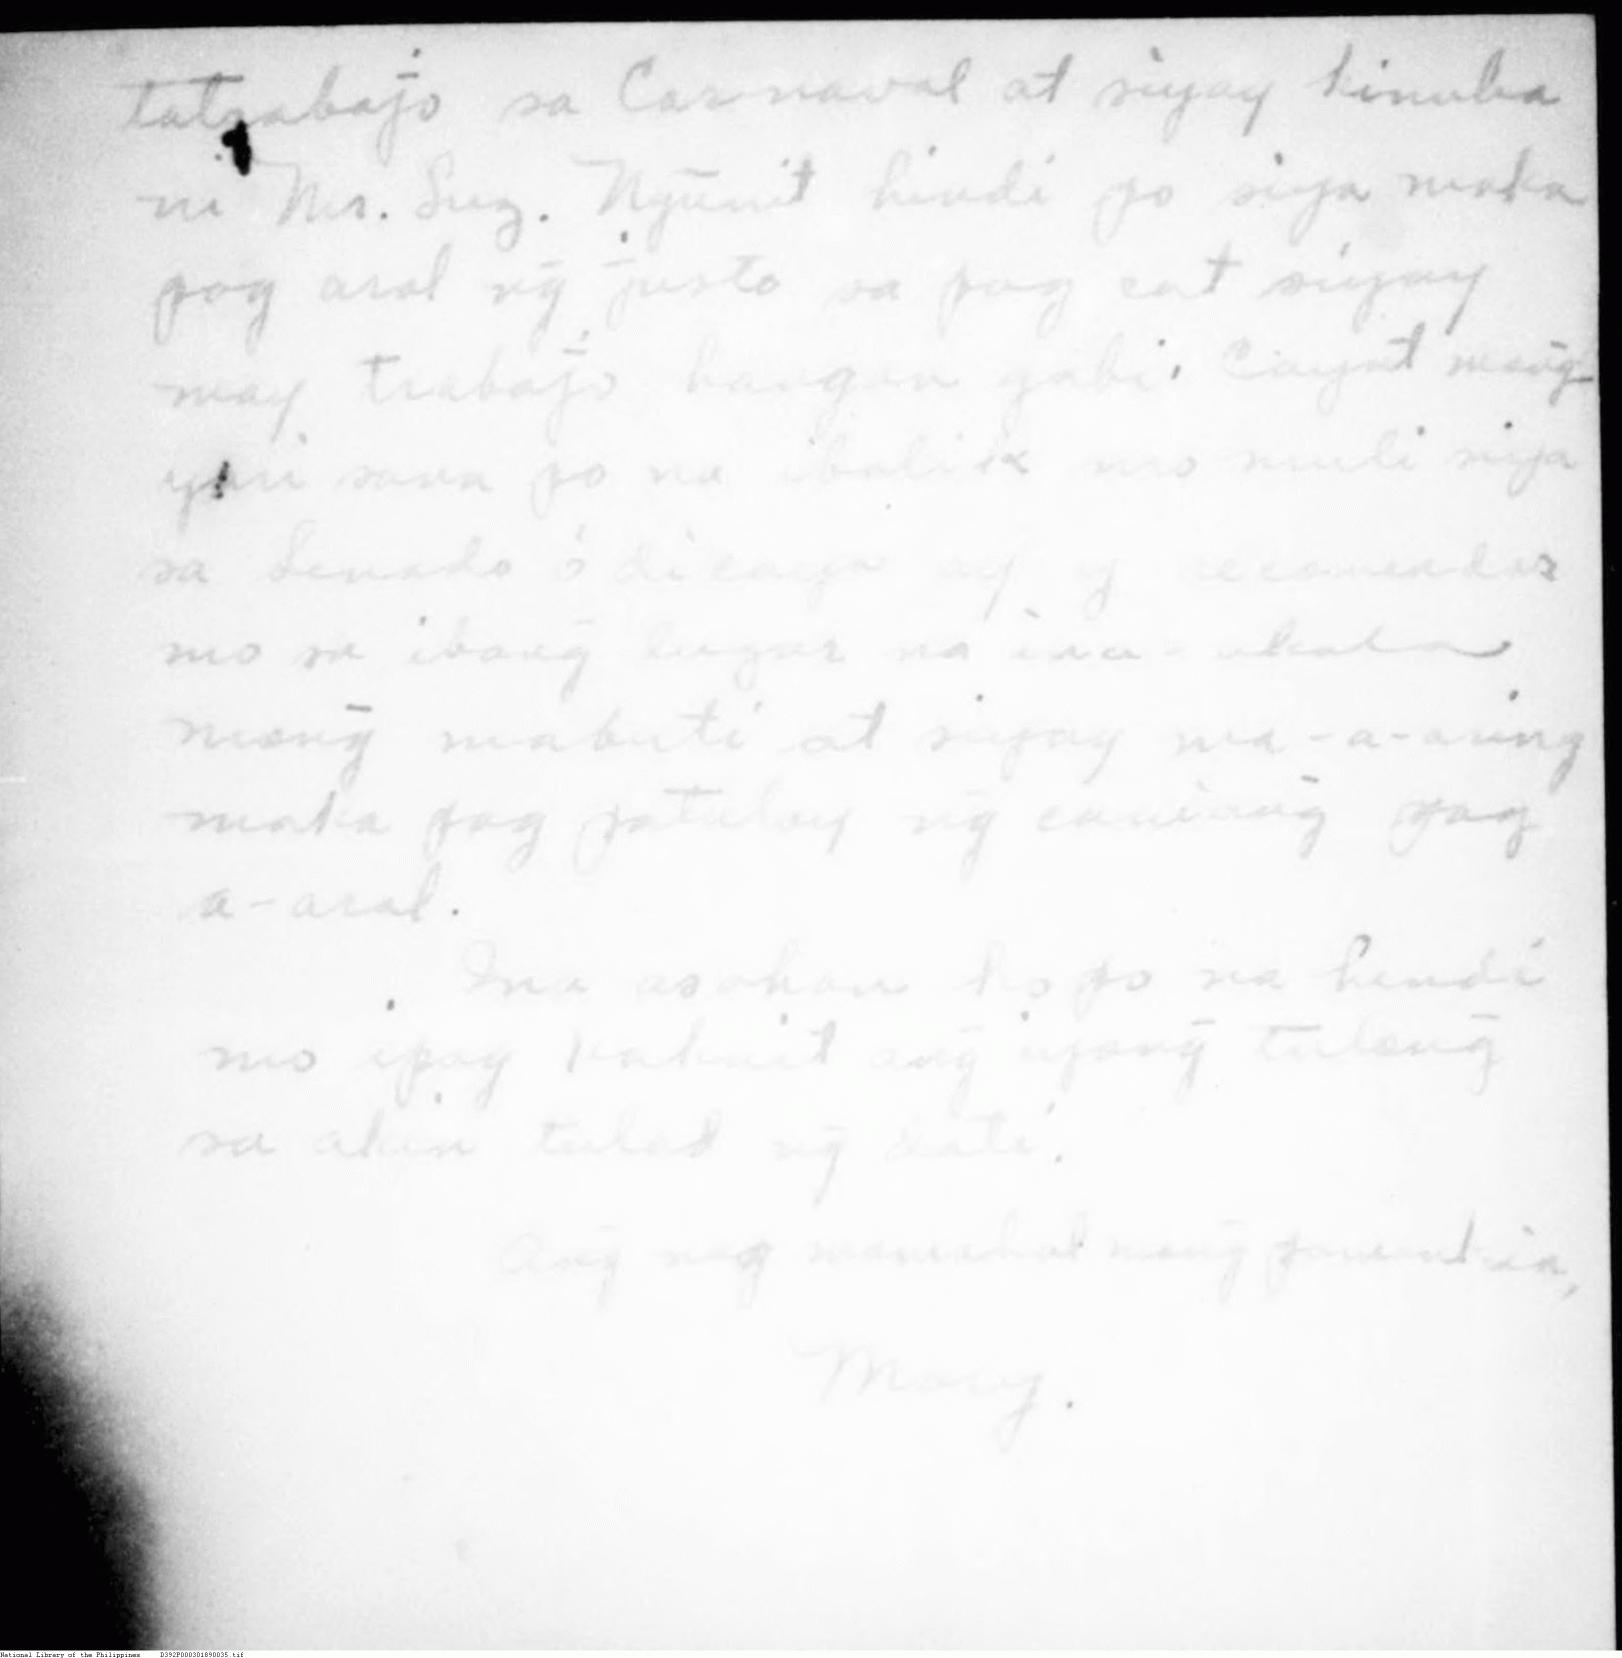 tatrabajo sa Carnaval at siyay kinuha
ni Mr. Luz. Ngunit hindi po siya maka
pag aral ng justo sa pag cat siyay
may trabajo hangan gabi. Cayat mang
yari sana po na ibalik mo muli siya
sa Senado ó di caya ay y recomendar
mo sa ibang lugar na ina-akala
mong mabuti at siyay ma-a-aring
maka pag patuloy ng canirang pag
a-aral.
Ina asahan ko po na hindi
mo ipag kakait ang iyong tulong
sa akin tulad ng dati.
Ang nag mamahal mong
Mary.
National Library of the Philippines D392P000301890035.tif